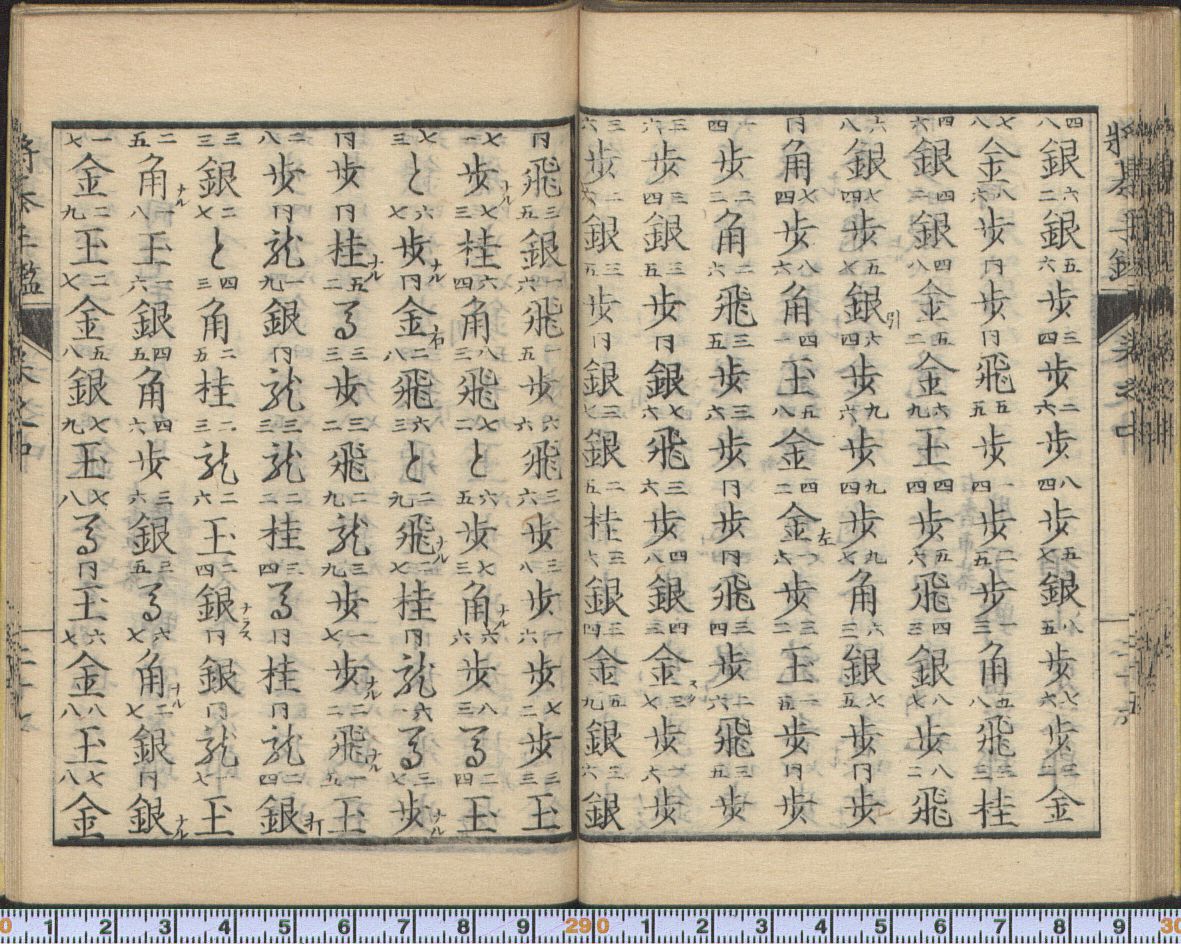 將棊玉鑑 巻之中
四八銀 六二銀 五六歩 三四歩 二六歩 八四歩 五七銀 八五歩 七六歩 三二金
七八金 八六歩 同歩 同飛 五五歩 一四歩 二五歩 一三角 五八飛 三三桂
四六銀 四二銀 四八金 五二金 六九玉 四四歩 五六飛 四三銀 八七歩 八二飛
六八銀 七四歩 五七銀引 六四歩 九六歩 九四歩 九七角 六三銀 七五歩 同歩
同角 七四歩 八六角 四一玉 五八金 四二金左 一六歩 三二玉 一五歩 同歩
一四歩 二二角 二六飛 三五歩 三六歩 同歩 同飛 三四歩 二六飛 三五歩
三六歩 三四銀 三五歩 同銀 七六飛 三六歩 四八銀 四三金スグ 三七歩 二六歩
三六歩 二六銀 三五歩 同銀 三七銀 二五桂 三六銀 三四金 五九銀 三六銀
同飛 三五銀 一六飛 一五歩 六六飛 三六歩 三八歩 一六歩 七二歩 三三玉
七一歩ナル 七三桂 六四角 八三飛 七二と 六五歩 七三角ナル 六六歩 八三馬 二四玉
七三と 六七歩ナル 同金右 二八飛 六三と 二九飛ナル 三七桂 同龍 六一馬 三七歩ナル
同歩 同桂ナル 五二馬 三三歩 三二飛 二九龍 三九歩 一七歩ナル 二二飛ナル 一五玉
二八歩 同龍 一九銀 同龍 三三龍 二二桂 三四馬 同桂 同龍 二四銀打
三三銀 二七と 四三角 二五桂 二三龍 二六玉 二四銀ナラス 同銀 同龍 一七玉
二五角ナル 一八玉 一六銀 四五角 四六歩 三六銀 三五馬 六七角ナル 二七銀 同銀ナル
一七金 二九玉 二七金 五八銀 七九玉 七八馬 同玉 六七金 八八玉 七八金
將棊玉鑑 巻之中